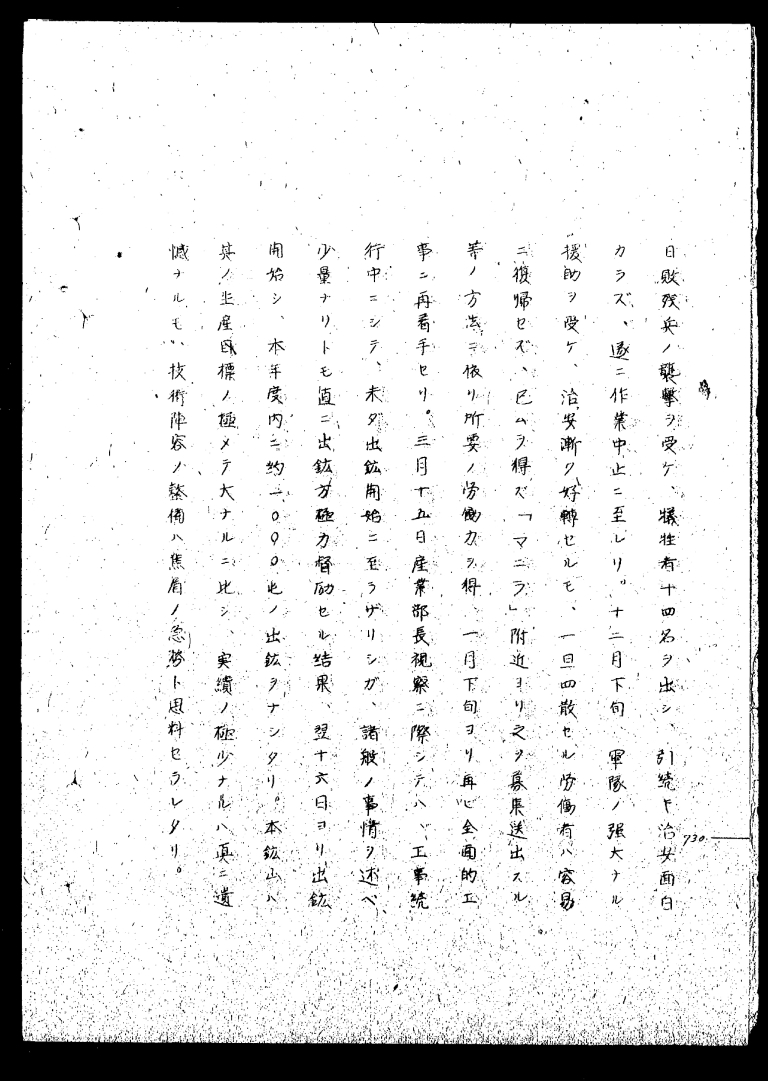 日敗残兵ノ襲撃ヲ受ケ、犠牲者十四名ヲ出シ、引続キ治安面白
カラズ、遂ニ作業中止ニ至レリ。十二月下旬、軍隊ノ強大ナル
援助ヲ受ケ、治安漸ク好轉セルモ、一旦四散セル労働者ハ容易
ニ復帰セズ、已ムヲ得ズ「マニラ」附近ヨリ之ヲ募集送出スル
等ノ方法ニ依リ所要ノ労働力ヲ得、一月下旬ヨリ再ビ全面的工
事ニ再着手セリ。三月十五日産業部長視察ニ際シテハ、工事続
行中ニシテ、未ダ出鉱開始ニ至ラザリシガ、諸般ノ事情ヲ述ベ、
少量ナリトモ直ニ出鉱方極力督励セル結果、翌十六日ヨリ出鉱
開始シ、本年度内ニ約一〇〇〇屯ノ出鉱ヲナシタリ。本鉱山ハ
其ノ生産目標ノ極メテ大ナルニ比シ、実績ノ極少ナルハ真ニ遺
憾ナルモ、技術陣容ノ整備ハ焦眉ノ急務ト思料セラレタリ。
730